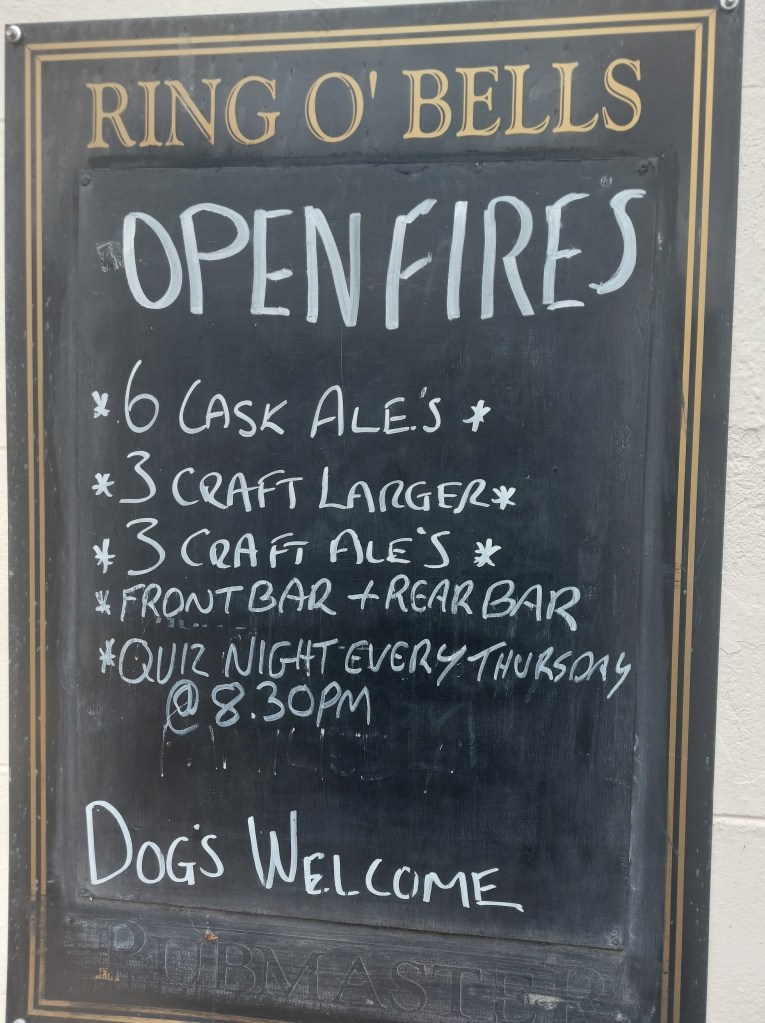 RING O' BELLS
OPEN FIRES
* 6 CASK ALE'S *
* 3 CRAFT LARGER *
* 3 CRAFT ALE'S *
* FRONT BAR + REAR BAR
* QUIZ NIGHT EVERY THURSDAY
@ 8.30PM
DOG'S WELCOME
PUBMASTER